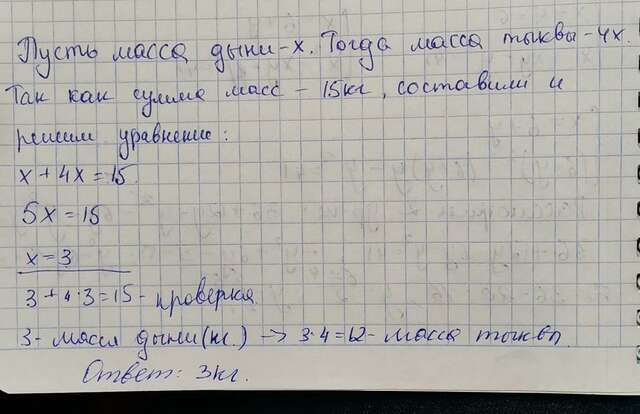 Пусть масса дыни - х. Тогда масса тыквы - 4х.
Так как сумма масс - 15кг, составим и
решим уравнение:
х + 4х = 15
5х = 15
х = 3
3 + 4·3 = 15 - проверка
3 - масса дыни (кг.) -> 3·4=12 - масса тыквы.
Ответ: 3кг.